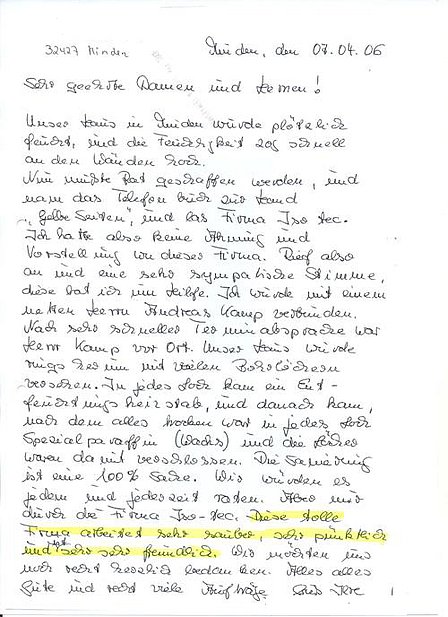 32427 Minden
Minden, den 07.04.06
Sehr geehrte Damen und Herren!
Unser Haus in Minden wurde plötzlich
feucht, und die Feuchtigkeit zog schnell
an den Wänden hoch.
Nun mußte Rat geschaffen werden, und
nam das Telefon buch zur Hand
"Gelbe Seiten", und las Firma Iso tec.
Ich hatte also keine Ahnung und
Vorstellung von dieser Firma. Rief also
an und eine sehr sympatische Stimme,
diese bat ich um Hilfe. Ich wurde mit einem
netten Herrn Andreas Kamp verbunden.
Nach sehr schneller Terminabsprache war
Herr Kamp vor Ort. Unser Haus wurde
rings herum mit vielen Bohrlöchern
versehen. In jedes Loch kam ein Ent-
feuchtungsheizstab, und danach kam,
nach dem alles trocken war in jedes Loch
Spezialparaffin (Wachs) und die Löcher
waren damit verschlossen. Die Sanierung
ist eine 100% Sache. Wir würden es
jedem und jederzeit raten. Aber nur
durch die Firma Iso-tec. Diese tolle
Firma arbeitet sehr sauber, sehr pünktlich
und ist sehr sehr freundlich. Wir möchten uns
recht herzlich bedanken. Alles alles
Gute und recht viele Aufträge